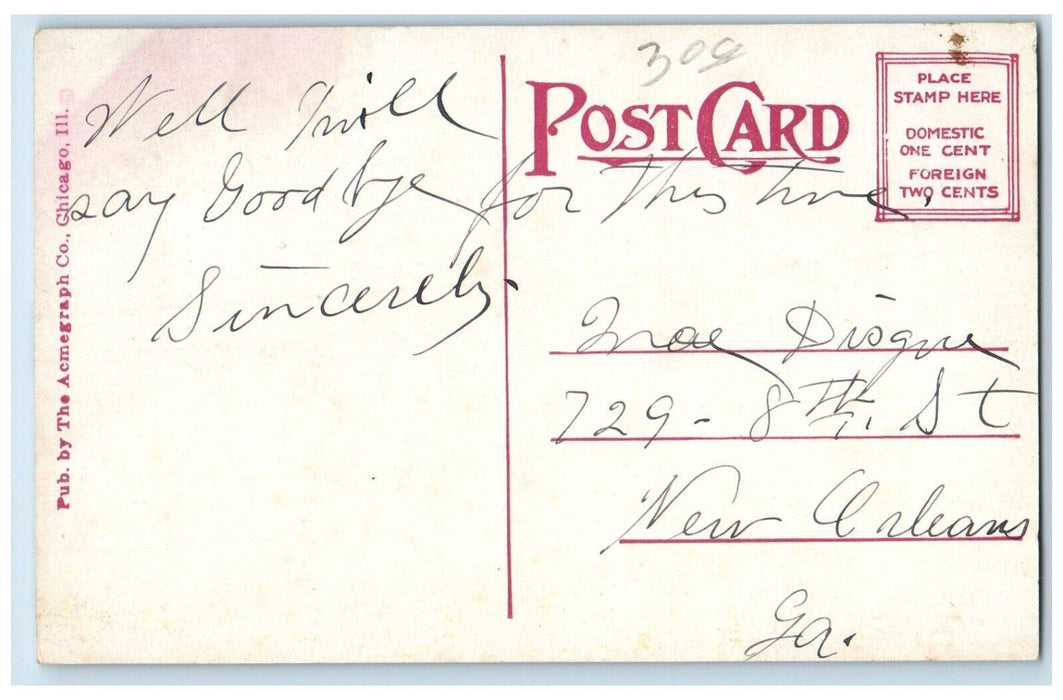 Pub. by The Acmegraph Co., Chicago, Ill.
Well I will
say Good bye for this time.
Sincerely
309
POST CARD
PLACE
STAMP HERE
DOMESTIC
ONE CENT
FOREIGN
TWO CENTS
Mae Disque
729 - 8TH. St
New Orleans
Ga.